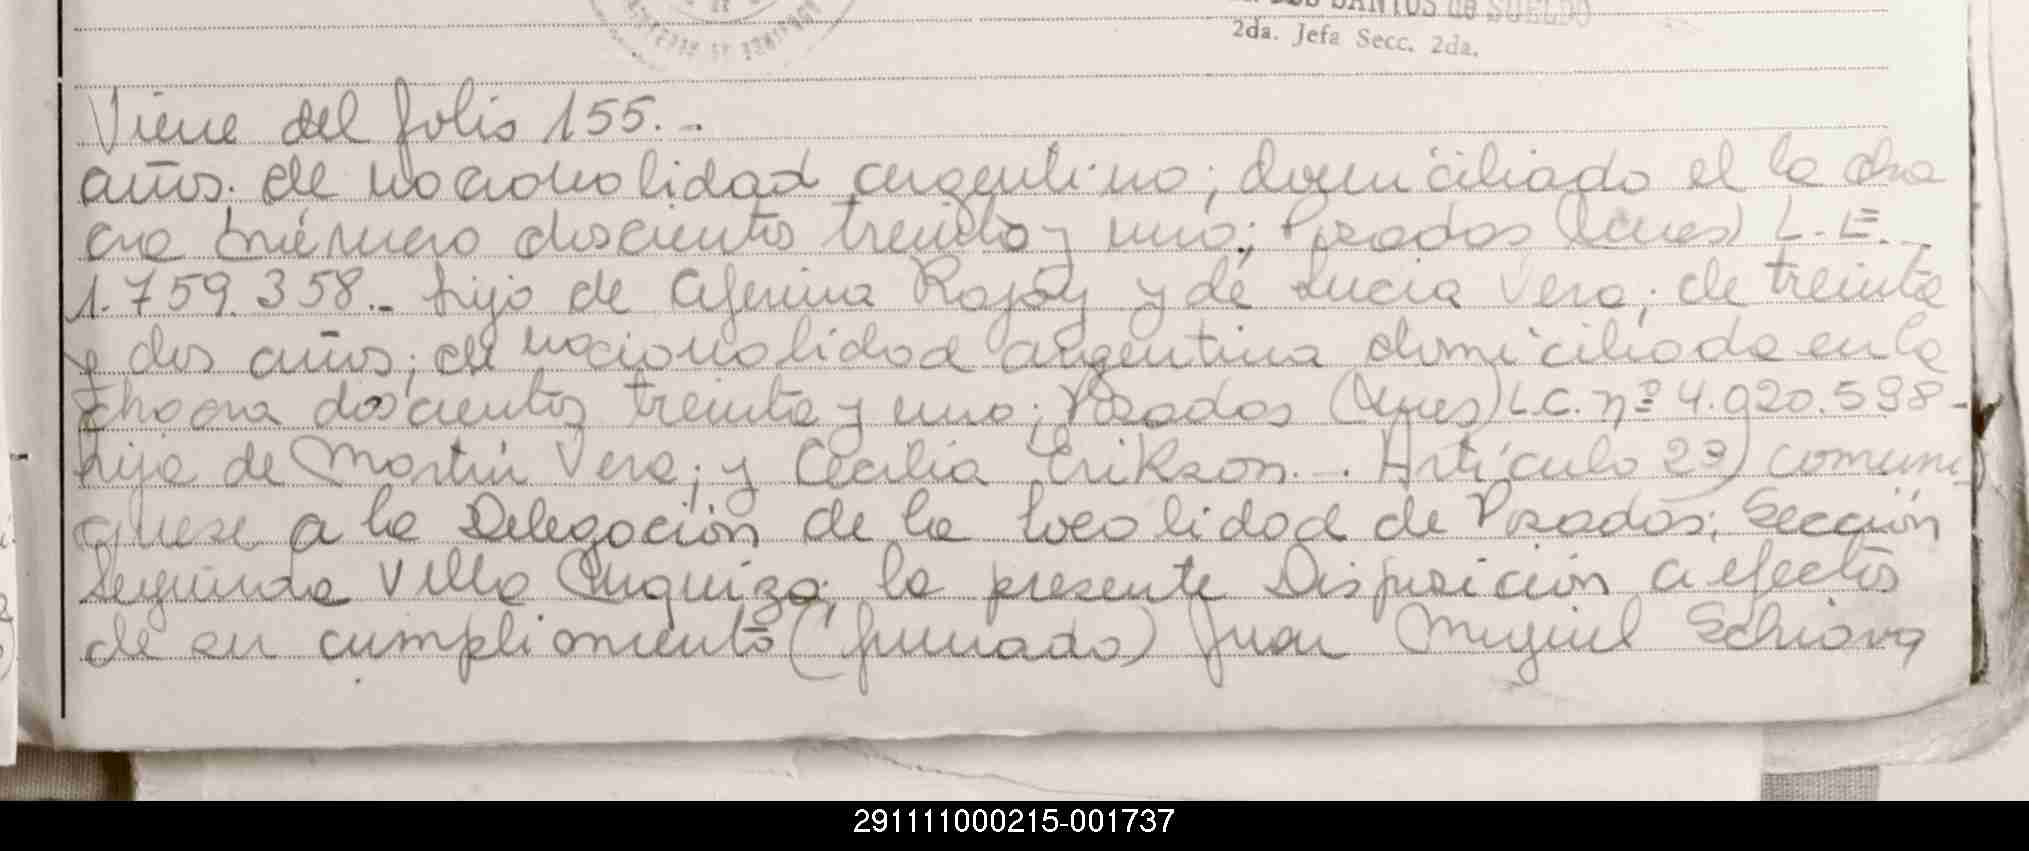 DOS SANTOS de SUELDO
2da. Jefa Secc. 2da.
Viene del folio 155.-
años. de nacionalidad argentino; domiciliado el la cha
cra número doscientos treinta y uno; Posadas L.E.
1.759.358.- hijo de Ceferina Rojas y de Lucia Vera; de treinta
y dos años; de nacionalidad argentina domiciliada en la
chacra doscientos treinta y uno; Posadas L.C. nº 4.920.598-
hija de Martín Vera; y Cecilia Erikson.-. Artículo 2º) comuní
quese a la Delegación de la localidad de Posadas; Sección
Segunda Villa Urquiza; la presente Disposición a efectos
de su cumplimiento (firmado) Juan Miguel Schiava
291111000215-001737